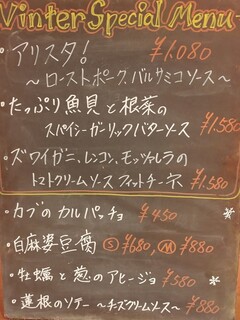 Winter Special Menu
・アリスタ! ¥1,080
～ローストポーク、バルサミコソース～
・たっぷり魚貝と根菜の
スパイシーガーリックバターソース ¥1,580
・ズワイガニ、レンコン、モッツァレラの
トマトクリームソース フィットチーネ ¥1,580
・カブのカルパッチョ ¥450
・白麻婆豆腐 Ⓢ¥680, Ⓜ¥880
・牡蠣と葱のアヒージョ ¥580
・蓮根のソテー ～チーズクリームソース～ ¥880